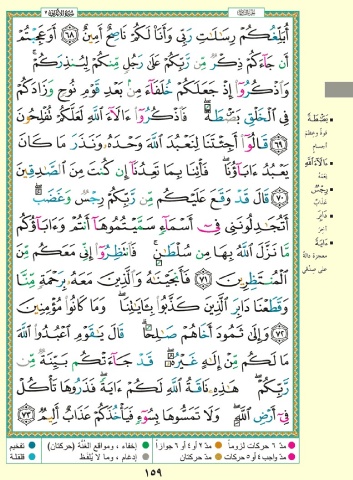 أُبَلِّغُكُمْ رِسَٰلَٰتِ رَبِّى وَأَنَا۠ لَكُمْ نَاصِحٌ أَمِينٌ ٦٨ أَوَعَجِبْتُمْ
أَن جَآءَكُمْ ذِكْرٌ مِّن رَّبِّكُمْ عَلَىٰ رَجُلٍ مِّنكُمْ لِيُنذِرَكُمْ ۚ
وَٱذْكُرُوٓا۟ إِذْ جَعَلَكُمْ خُلَفَآءَ مِنۢ بَعْدِ قَوْمِ نُوحٍ وَزَادَكُمْ
فِى ٱلْخَلْقِ بَصْۜطَةً ۖ فَٱذْكُرُوٓا۟ ءَالَآءَ ٱللَّهِ لَعَلَّكُمْ تُفْلِحُونَ
٦٩ قَالُوٓا۟ أَجِئْتَنَا لِنَعْبُدَ ٱللَّهَ وَحْدَهُۥ وَنَذَرَ مَا كَانَ
يَعْبُدُ ءَابَآؤُنَا ۖ فَأْتِنَا بِمَا تَعِدُنَآ إِن كُنتَ مِنَ ٱلصَّٰدِقِينَ
٧٠ قَالَ قَدْ وَقَعَ عَلَيْكُم مِّن رَّبِّكُمْ رِجْسٌ وَغَضَبٌ ۖ
أَتُجَٰدِلُونَنِى فِىٓ أَسْمَآءٍ سَمَّيْتُمُوهَآ أَنتُمْ وَءَابَآؤُكُم
مَّا نَزَّلَ ٱللَّهُ بِهَا مِن سُلْطَٰنٍ ۚ فَٱنتَظِرُوٓا۟ إِنِّى مَعَكُم مِّنَ
ٱلْمُنتَظِرِينَ ٧١ فَأَنجَيْنَٰهُ وَٱلَّذِينَ مَعَهُۥ بِرَحْمَةٍ مِّنَّا
وَقَطَعْنَا دَابِرَ ٱلَّذِينَ كَذَّبُوا۟ بِـَٔايَٰتِنَا ۖ وَمَا كَانُوا۟ مُؤْمِنِينَ
٧٢ وَإِلَىٰ ثَمُودَ أَخَاهُمْ صَٰلِحًا ۗ قَالَ يَٰقَوْمِ ٱعْبُدُوا۟ ٱللَّهَ
مَا لَكُم مِّنْ إِلَٰهٍ غَيْرُهُۥ ۖ قَدْ جَآءَتْكُم بَيِّنَةٌ مِّن
رَّبِّكُمْ ۖ هَٰذِهِۦ نَاقَةُ ٱللَّهِ لَكُمْ ءَايَةً ۖ فَذَرُوهَا تَأْكُلْ
فِىٓ أَرْضِ ٱللَّهِ ۖ وَلَا تَمَسُّوهَا بِسُوٓءٍ فَيَأْخُذَكُمْ عَذَابٌ أَلِيمٌ ٧٣
بَصْطَةً
قوة وعظم
أجسام
ءَالَآءَ ٱللَّهِ
نعمه
رِجْسٌ
عذاب
دَابِرَ
آخر
ءَايَةً
معجزة دالة
على صدقي
مدّ ٦ حركات لزوماً
مدّ ٢ أو ٤ أو ٦ جوازاً
إخفاء، ومواقع الغُنَّة (حركتان)
تفخيم
مدّ واجب ٤ أو ٥ حركات
مدّ حركتان
إدغام، وما لا يُلفَظ
قلقلة
١٥٩